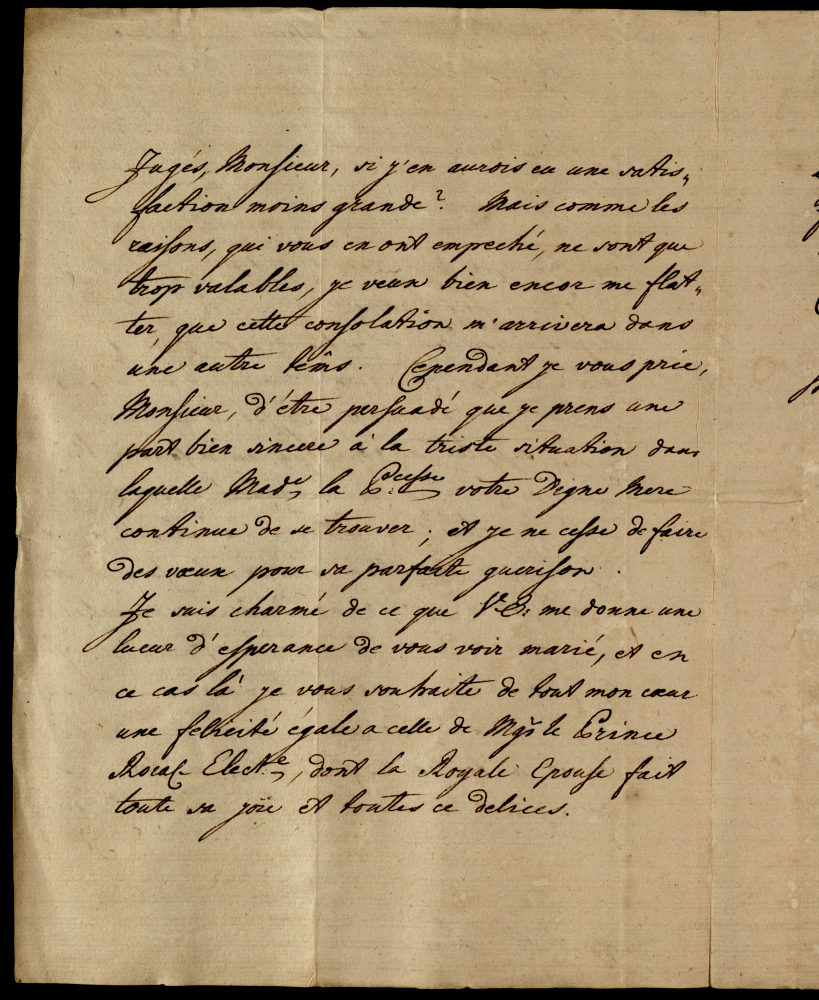 Jugés, Monsieur, si j'en aurois eu une satis„
faction moins grande? Mais comme les
raisons, qui vous en ont empeché, ne sont que
trop valables, je veux bien encor me flat„
ter, que cette consolation m'arrivera dans
une autre têms. Cependant je vous prie,
Monsieur, d'être persuadé que je prens une
part bien sincere à la triste situation dans
laquelle Made, la Pcesse votre Digne Mere
continue de se trouver; et je ne cesse de faire
des vœux pour sa parfaite guerison.
Je suis charmé de ce que V. E: me donne une
lueur d'esperance de vous voir marié, et en
ce cas là je vous souhaite de tout mon cœur
une felicité égale a celle de Mgr le Prince
Roial Elect.e, dont la Royale Epouse fait
toute sa joïe et toutes ce delices.